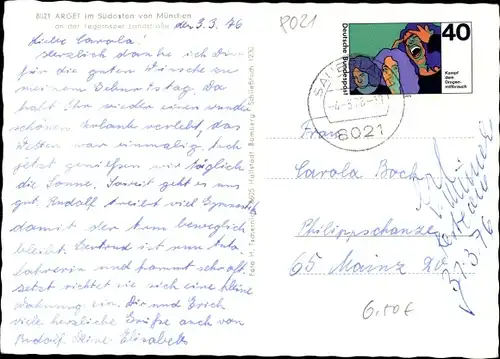 8021 ARGET im Südosten von München
an der Tegernseer Landstraße
den 3.3.76
Liebe Carola!
Herzlich danke ich Dir
für die guten Wünsche zu
meinem Geburtstag. Da
habt Ihr wieder einen wunder
schönen Urlaub verlebt, das
Wetter war einmalig. Auch
jetzt genießen wir täglich
die Sonne. Soweit geht es uns
gut. Rudolf treibt viel Gymnastik
damit der Arm beweglich
bleibt. Gertrud ist nun Auto
fahrerin und kommt sehr oft.
Jetzt richtet sie sich eine kleine
Wohnung ein. Dir und Erich
viele herzliche Grüße auch von
Rudolf Deine Elisabeth
P021
Deutsche Bundespost
40
Kampf
dem
Drogen-
mißbrauch
8021
Frau
Carola Bock
Philippschanze
65 Mainz
31.3.76
6,50 €